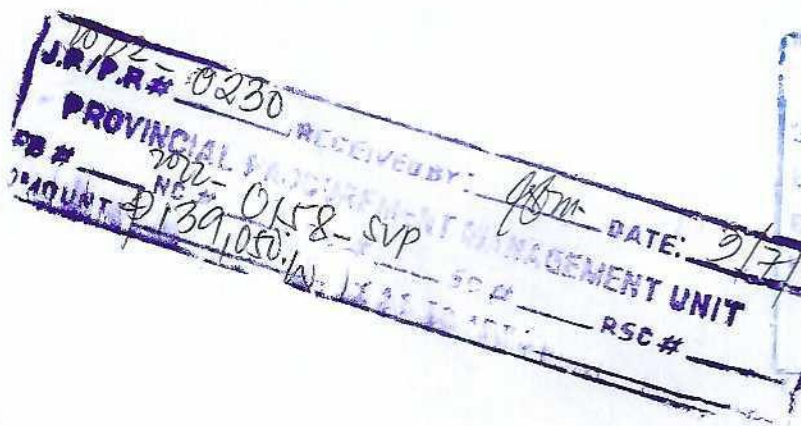 2022-
J.R/P.R # 0230 RECEIVED BY: DATE: 9/7/
PROVINCIAL PROCUREMENT MANAGEMENT UNIT
PB # NC # 2022-0158-SVP SO # RSC #
AMOUNT ₱139,050.